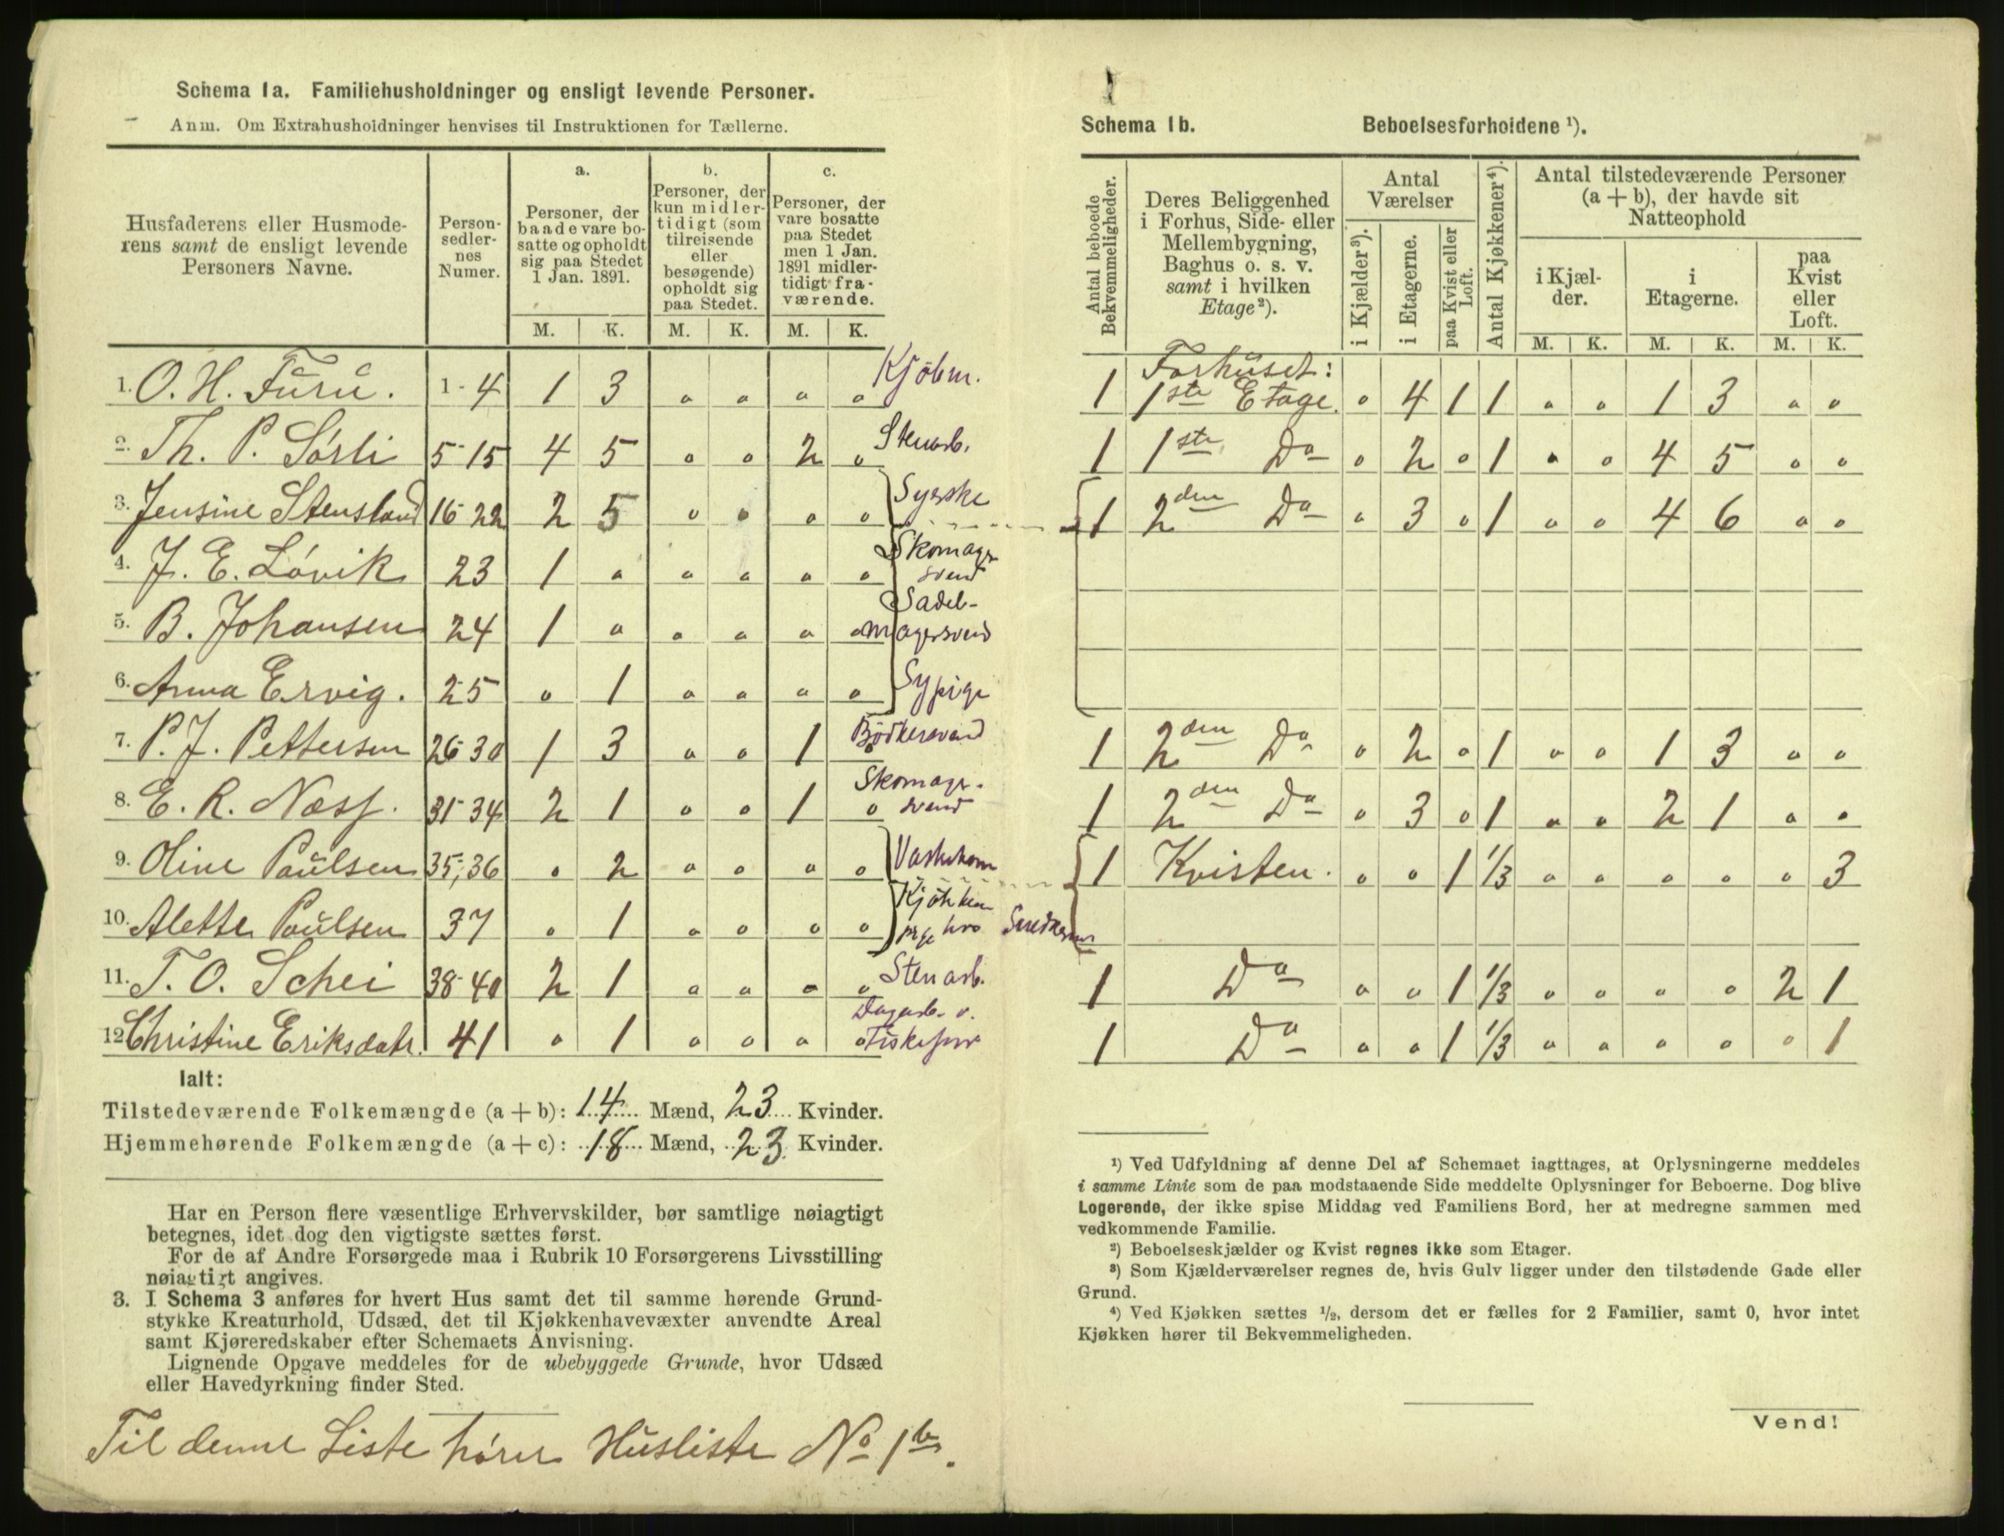 Schema 1a. Familiehusholdninger og ensligt levende Personer.
Anm. Om Extrahusholdninger henvises til Instruktionen for Tællerne.
Husfaderens eller Husmoderens samt de ensligt levende Personers Navne.
Person-sedler-nes Numer.
a. Personer, der baade vare bosatte og opholdt sig paa Stedet 1 Jan. 1891.
b. Personer, der kun midlertidigt (som tilreisende eller besøgende) opholdt sig paa Stedet.
c. Personer, der vare bosatte paa Stedet men 1 Jan. 1891 midlertidigt fraværende.
M. K. M. K. M. K.
1. O. H. Furu. 1-4 1 3 " " " " Kjöbm.
2. Th. P. Sørli 5-15 4 5 " " 2 " Stenarb.
3. Jensine Stensland 16-22 2 5 " " " " Syerske
4. J. E. Løvik 23 1 " " " " " Skomagersvend
5. B. Johansen 24 1 " " " " " Sadelmagersvend
6. Anna Ervig. 25 " 1 " " " " Sypige
7. P. J. Pettersen 26-30 1 3 " " 1 " Bödkersvend
8. E. R. Næss. 31-34 2 1 " " 1 " Skomagersvend
9. Oline Paulsen 35, 36 " 2 " " " " Vaskekone
10. Alette Paulsen 37 " 1 " " " " Kjökkenpige hos
11. T. O. Schei 38-40 2 1 " " " " Stenarb.
12. Christine Eriksdatr. 41 " 1 " " " " Dagarb. v.
Ialt:
Tilstedeværende Folkemængde (a + b): 14 Mænd, 23 Kvinder.
Hjemmehørende Folkemængde (a + c): 18 Mænd, 23 Kvinder.
Har en Person flere væsentlige Erhvervskilder, bør samtlige nøiagtigt
betegnes, idet dog den vigtigste sættes først.
For de af Andre Forsørgede maa i Rubrik 10 Forsørgerens Livsstilling
nøiagtigt angives.
3. I Schema 3 anføres for hvert Hus samt det til samme hørende Grund-
stykke Kreaturhold, Udsæd, det til Kjøkkenhavevæxter anvendte Areal
samt Kjøreredskaber efter Schemaets Anvisning.
Lignende Opgave meddeles for de ubebyggede Grunde, hvor Udsæd
eller Havedyrkning finder Sted.
Til denne Liste hører Husliste No 1b.
Schema 1b. Beboelsesforholdene ¹).
Antal beboede Bekvemmeligheder.
Deres Beliggenhed i Forhus, Side- eller Mellembygning, Baghus o. s. v. samt i hvilken Etage²).
Antal Værelser
i Kjælder³).
i Etagerne.
paa Kvist eller Loft.
Antal Kjøkkener⁴).
Antal tilstedeværende Personer (a + b), der havde sit Natteophold
i Kjælder.
i Etagerne.
paa Kvist eller Loft.
M. K. M. K. M. K.
Forhuset:
1 1ste Etage. " 4 1 1 " " 1 3 " "
1 1ste Do " 2 " 1 " " 4 5 " "
1 2den Do " 3 " 1 " " 4 6 " "
1 2den Do " 2 " 1 " " 1 3 " "
1 2den Do " 3 " 1 " " 2 1 " "
1 Kvisten. " " 1 1/3 " " " " " 3
1 Do " " 1 1/3 " " " " 2 1
1 Do " " 1 1/3 " " " " " 1
¹) Ved Udfyldning af denne Del af Schemaet iagttages, at Oplysningerne meddeles
i samme Linie som de paa modstaaende Side meddelte Oplysninger for Beboerne. Dog blive
Logerende, der ikke spise Middag ved Familiens Bord, her at medregne sammen med
vedkommende Familie.
²) Beboelseskjælder og Kvist regnes ikke som Etager.
³) Som Kjælderværelser regnes de, hvis Gulv ligger under den tilstødende Gade eller
Grund.
⁴) Ved Kjøkken sættes ¹/₂, dersom det er fælles for 2 Familier, samt 0, hvor intet
Kjøkken hører til Bekvemmeligheden.
Vend!